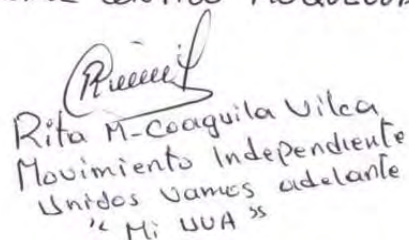 Rita M-Coaguila Vilca
Movimiento Independiente
Unidos Vamos adelante
" Mi UVA "